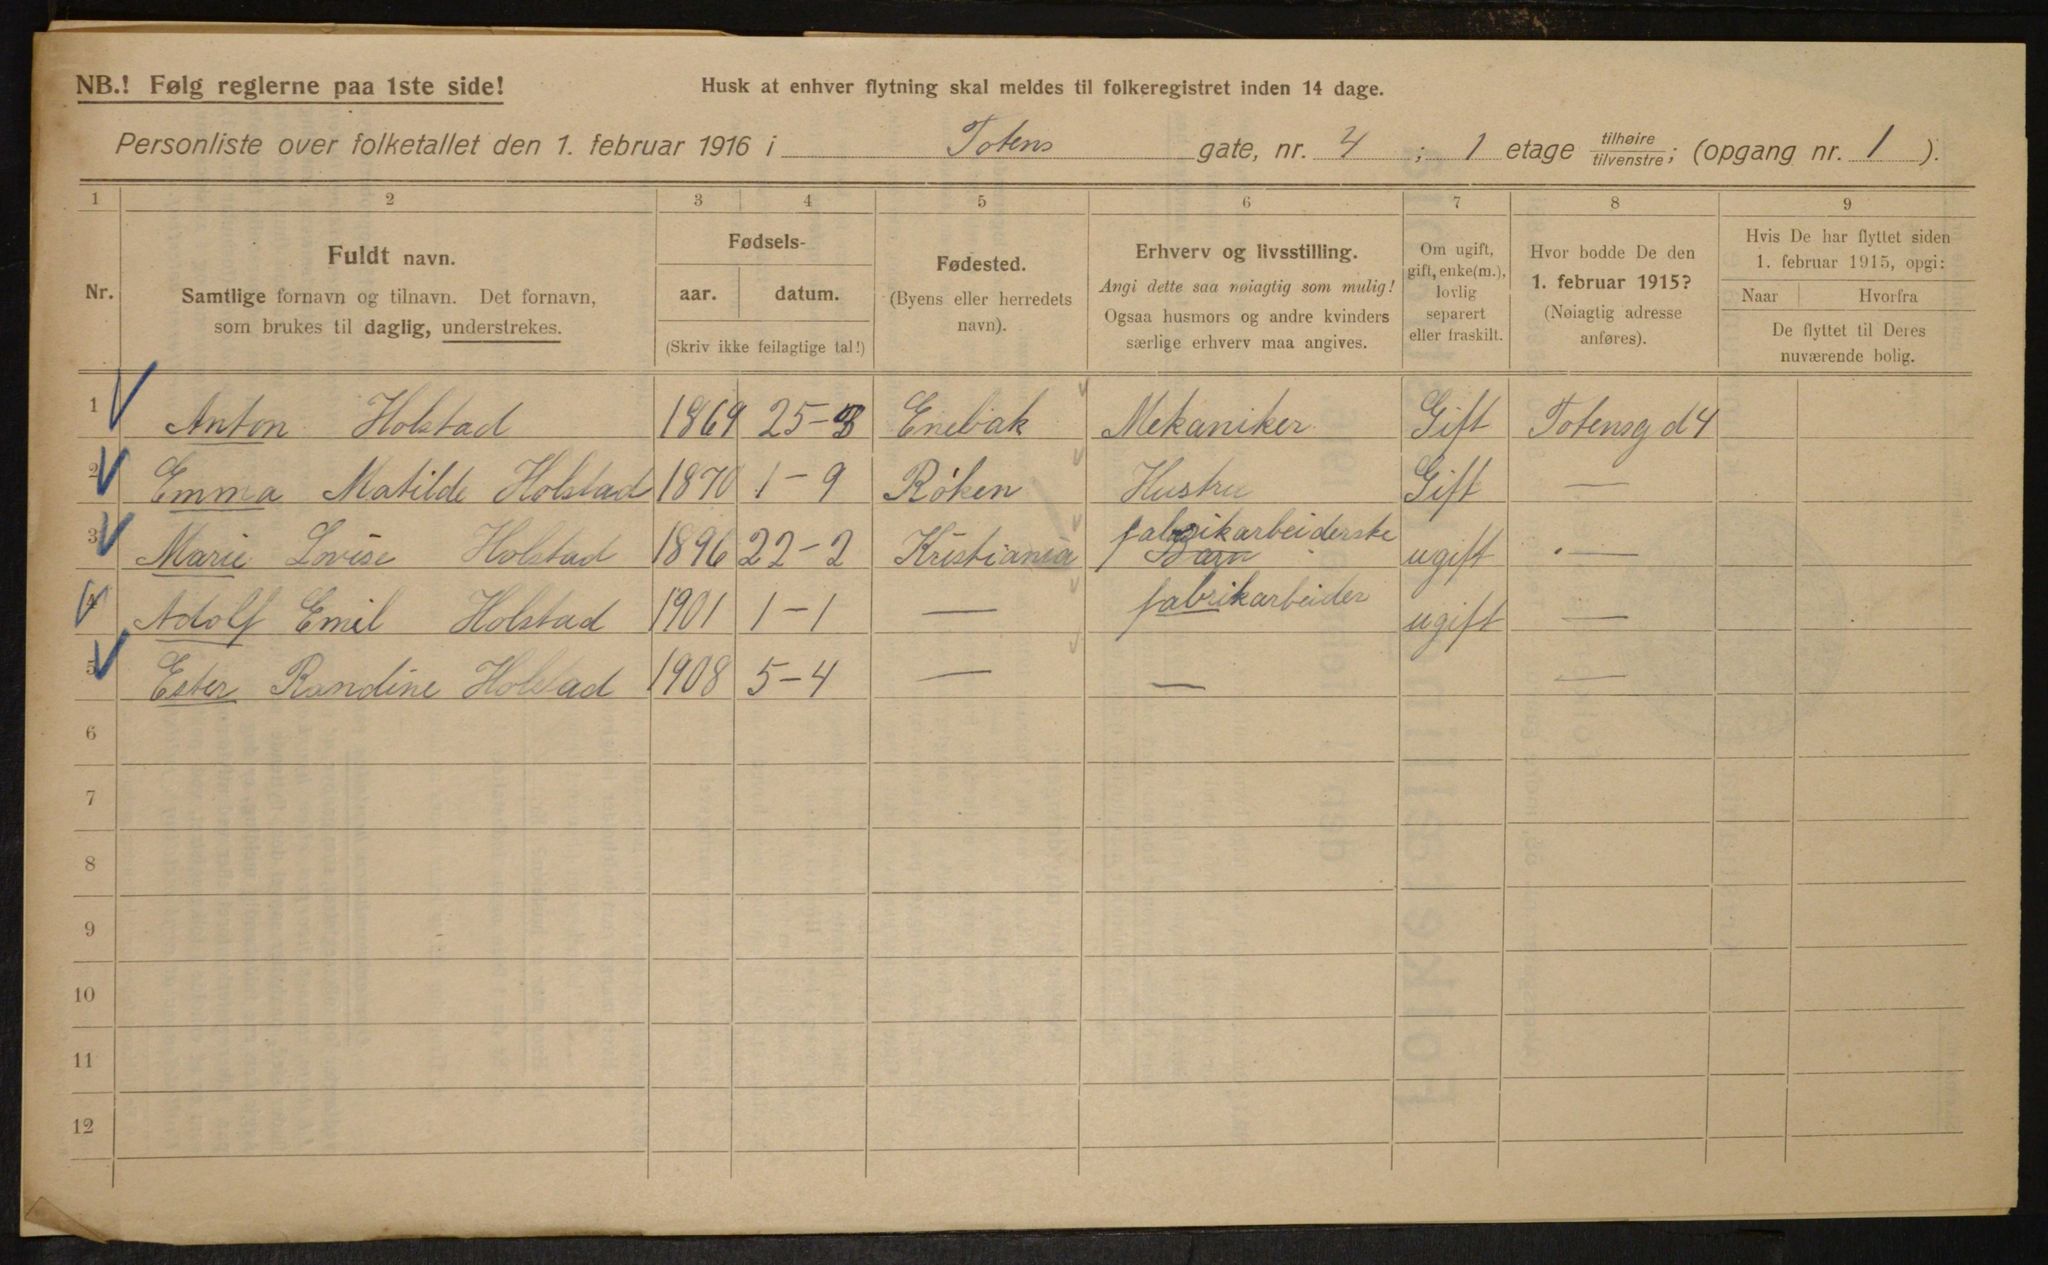 NB.! Følg reglerne paa 1ste side! Husk at enhver flytning skal meldes til folkeregistret inden 14 dage.
Personliste over folketallet den 1. februar 1916 i Totens gate, nr. 4 ; 1 etage tilhøire/tilvenstre; (opgang nr. 1 ).
1 2 3 4 5 6 7 8 9
Nr.
Fuldt navn.
Samtlige fornavn og tilnavn. Det fornavn,
som brukes til daglig, understrekes.
Fødsels-
aar. datum.
(Skriv ikke feilagtige tal!)
Fødested.
(Byens eller herredets
navn).
Erhverv og livsstilling.
Angi dette saa nøiagtig som mulig!
Ogsaa husmors og andre kvinders
særlige erhverv maa angives.
Om ugift,
gift, enke(m.),
lovlig
separert
eller fraskilt.
Hvor bodde De den
1. februar 1915?
(Nøiagtig adresse
anføres).
Hvis De har flyttet siden
1. februar 1915, opgi:
Naar Hvorfra
De flyttet til Deres
nuværende bolig.
1 Anton Holstad 1869 25-3 Enebak Mekaniker Gift Totensgd 4
2 Emma Matilde Holstad 1870 1-9 Røken Hustru Gift —
3 Marie Lovise Holstad 1896 22-2 Kristiania fabrikarbeiderske Barn ugift —
4 Adolf Emil Holstad 1901 1-1 — fabrikarbeider ugift —
5 Ester Randine Holstad 1908 5-4 — — —
6
7
8
9
10
11
12